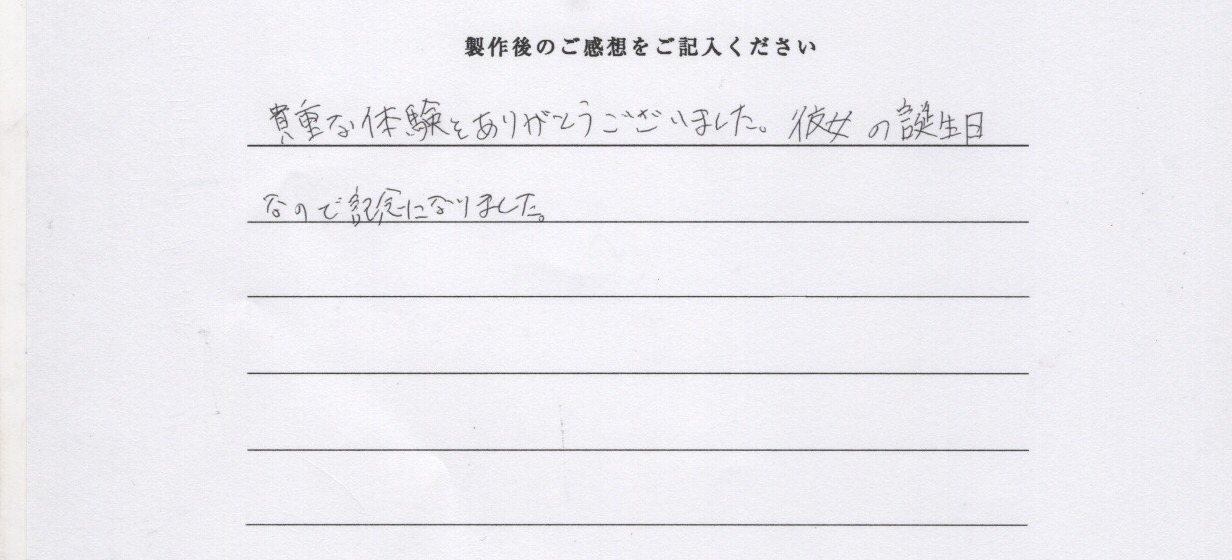 製作後のご感想をご記入ください
貴重な体験をありがとうございました。彼女の誕生日
なので記念になりました。